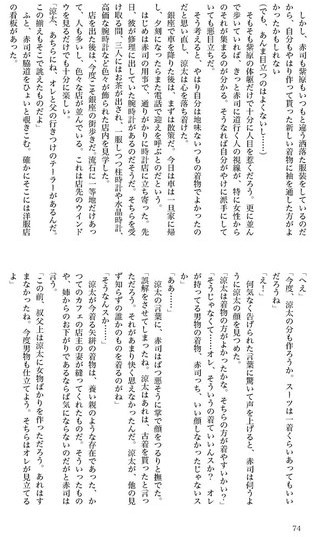 しかし、赤司も紫原もいつもと違う洒落た服装をしているのだ
から、自分もやはり作って貰った新しい着物に袖を通した方がよ
かったかもしれない
(でも、あんま目立つのはよくないし……)
そもそも紫原の体軀だけで十分に人目を惹くだろう。更に並ん
で歩いていれば、きっと赤司も道行く人の視線が、特に女性から
のそれが集まるのが分かる。そうなれば自分がやけに派手にして
いても悪目立ちだ。
そう考えると、やはり自分は地味ないつもの着物でよかったの
だと思い直し、涼太は心を落ち着けた。
銀座で車を降りた後は、まずは散策だ。今日は車は一旦家に帰
し、夕刻になったらまた電話で迎えを呼ぶとのだという。
はじめは赤司の用事で、通りがかりに時計店に立ち寄った。先
日、彼が修理に出していた腕時計があるのだそうだ。そちらを受
け取る間、三人にはお茶が出され、一服しつつ柱時計や水晶時計、
高価な腕時計など色々が飾られた店内を見学した。
店を出た後は、今度こそ銀座の街歩きだ。流石に一等地だけあっ
て、人も多いし、色々な店が並んでいる。これは店先のウインド
ウを見るだけでも十分に楽しい。
「涼太、あちらにね、オレと父の行きつけのテーラーがあるんだ。
この揃えもそこで誂えたものだよ」
ふと、赤司が脇道をひょいと覗きこむ。確かにそこには洋服店
の看板があった。
「へえ」
「今度、涼太の分も作ろうか。スーツは一着くらいあってもいい
だろうね」
「えー」
何気なく告げられた言葉に驚いて声を上げると、赤司は伺うよ
うに涼太の顔を見つめた。
「涼太は着物の方がよかったかな。そちらの方が着やすいかい？」
「そうじゃなくて……オレ、そういうの着ていいんスか？　オレ
が持ってる男物の着物、赤司っち、いい顔しなかったじゃないス
か」
「ああ……」
涼太の言葉に、赤司はばつ悪そうに掌で顔をつるりと撫でた。
「誤解をさせてしまったね。涼太はあれは、古着を貰ったと言っ
ただろう。それがあまり快く思えなかったんだ。涼太が、他の見
ず知らずの誰かのものを着るのがね」
「そうなんスか……」
涼太が今着る矢絣の着物は、養い親のような存在であった、か
つてのカフェの店主の妻が縫ってくれたものだ。そういったもの
や、姉からのお下がりであるならば気にならないのだがと赤司は
言う。
「この前、叔父上は涼太に女物ばかりを作っただろう。あれはす
まなかったね。今度男物も仕立てよう。そちらはオレが見立てる
よ」
74